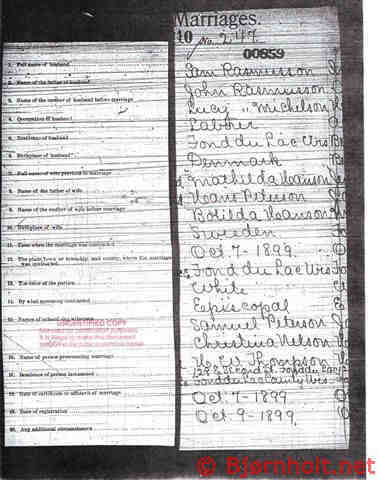 Marriages.
No. 247
00859
1. Full name of husband
2. Name of the father of husband
3. Name of the mother of husband before marriage
4. Occupation of husband
5. Residence of husband
6. Birthplace of husband
7. Full name of wife previous to marriage
8. Name of the father of wife
9. Name of the mother of wife before marriage
10. Birthplace of wife
11. Time when the marriage was contracted
12. The place, town or township, and county, where the marriage was contracted
13. The color of the parties
14. By what ceremony contracted
15. Names of subscribing witnesses
UNCERTIFIED COPY
16. Name of person pronouncing marriage
17. Residence of person last named
18. Date of certificate or affidavit of marriage
19. Date of registration
20. Any additional circumstances
Rasmusson
John Rasmusson
Lucy " Michelson
Laborer
Fond du Lac Wis
Denmark
Mathilda Hanson
Hans Peterson
Bolilda Hanson
Sweden
Oct 7- 1899.
Fond du Lac Wis
White
Episcopal
Samuel Peterson
Christina Nelson
Thompson
Fond du Lac County Wis
Oct-7-1899
Oct 9-1899.
© Bjørnholt.net